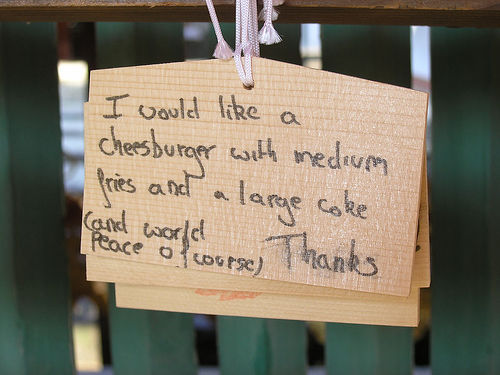 I would like a
cheesburger with medium
fries and a large coke
(and world
Peace of course)
Thanks